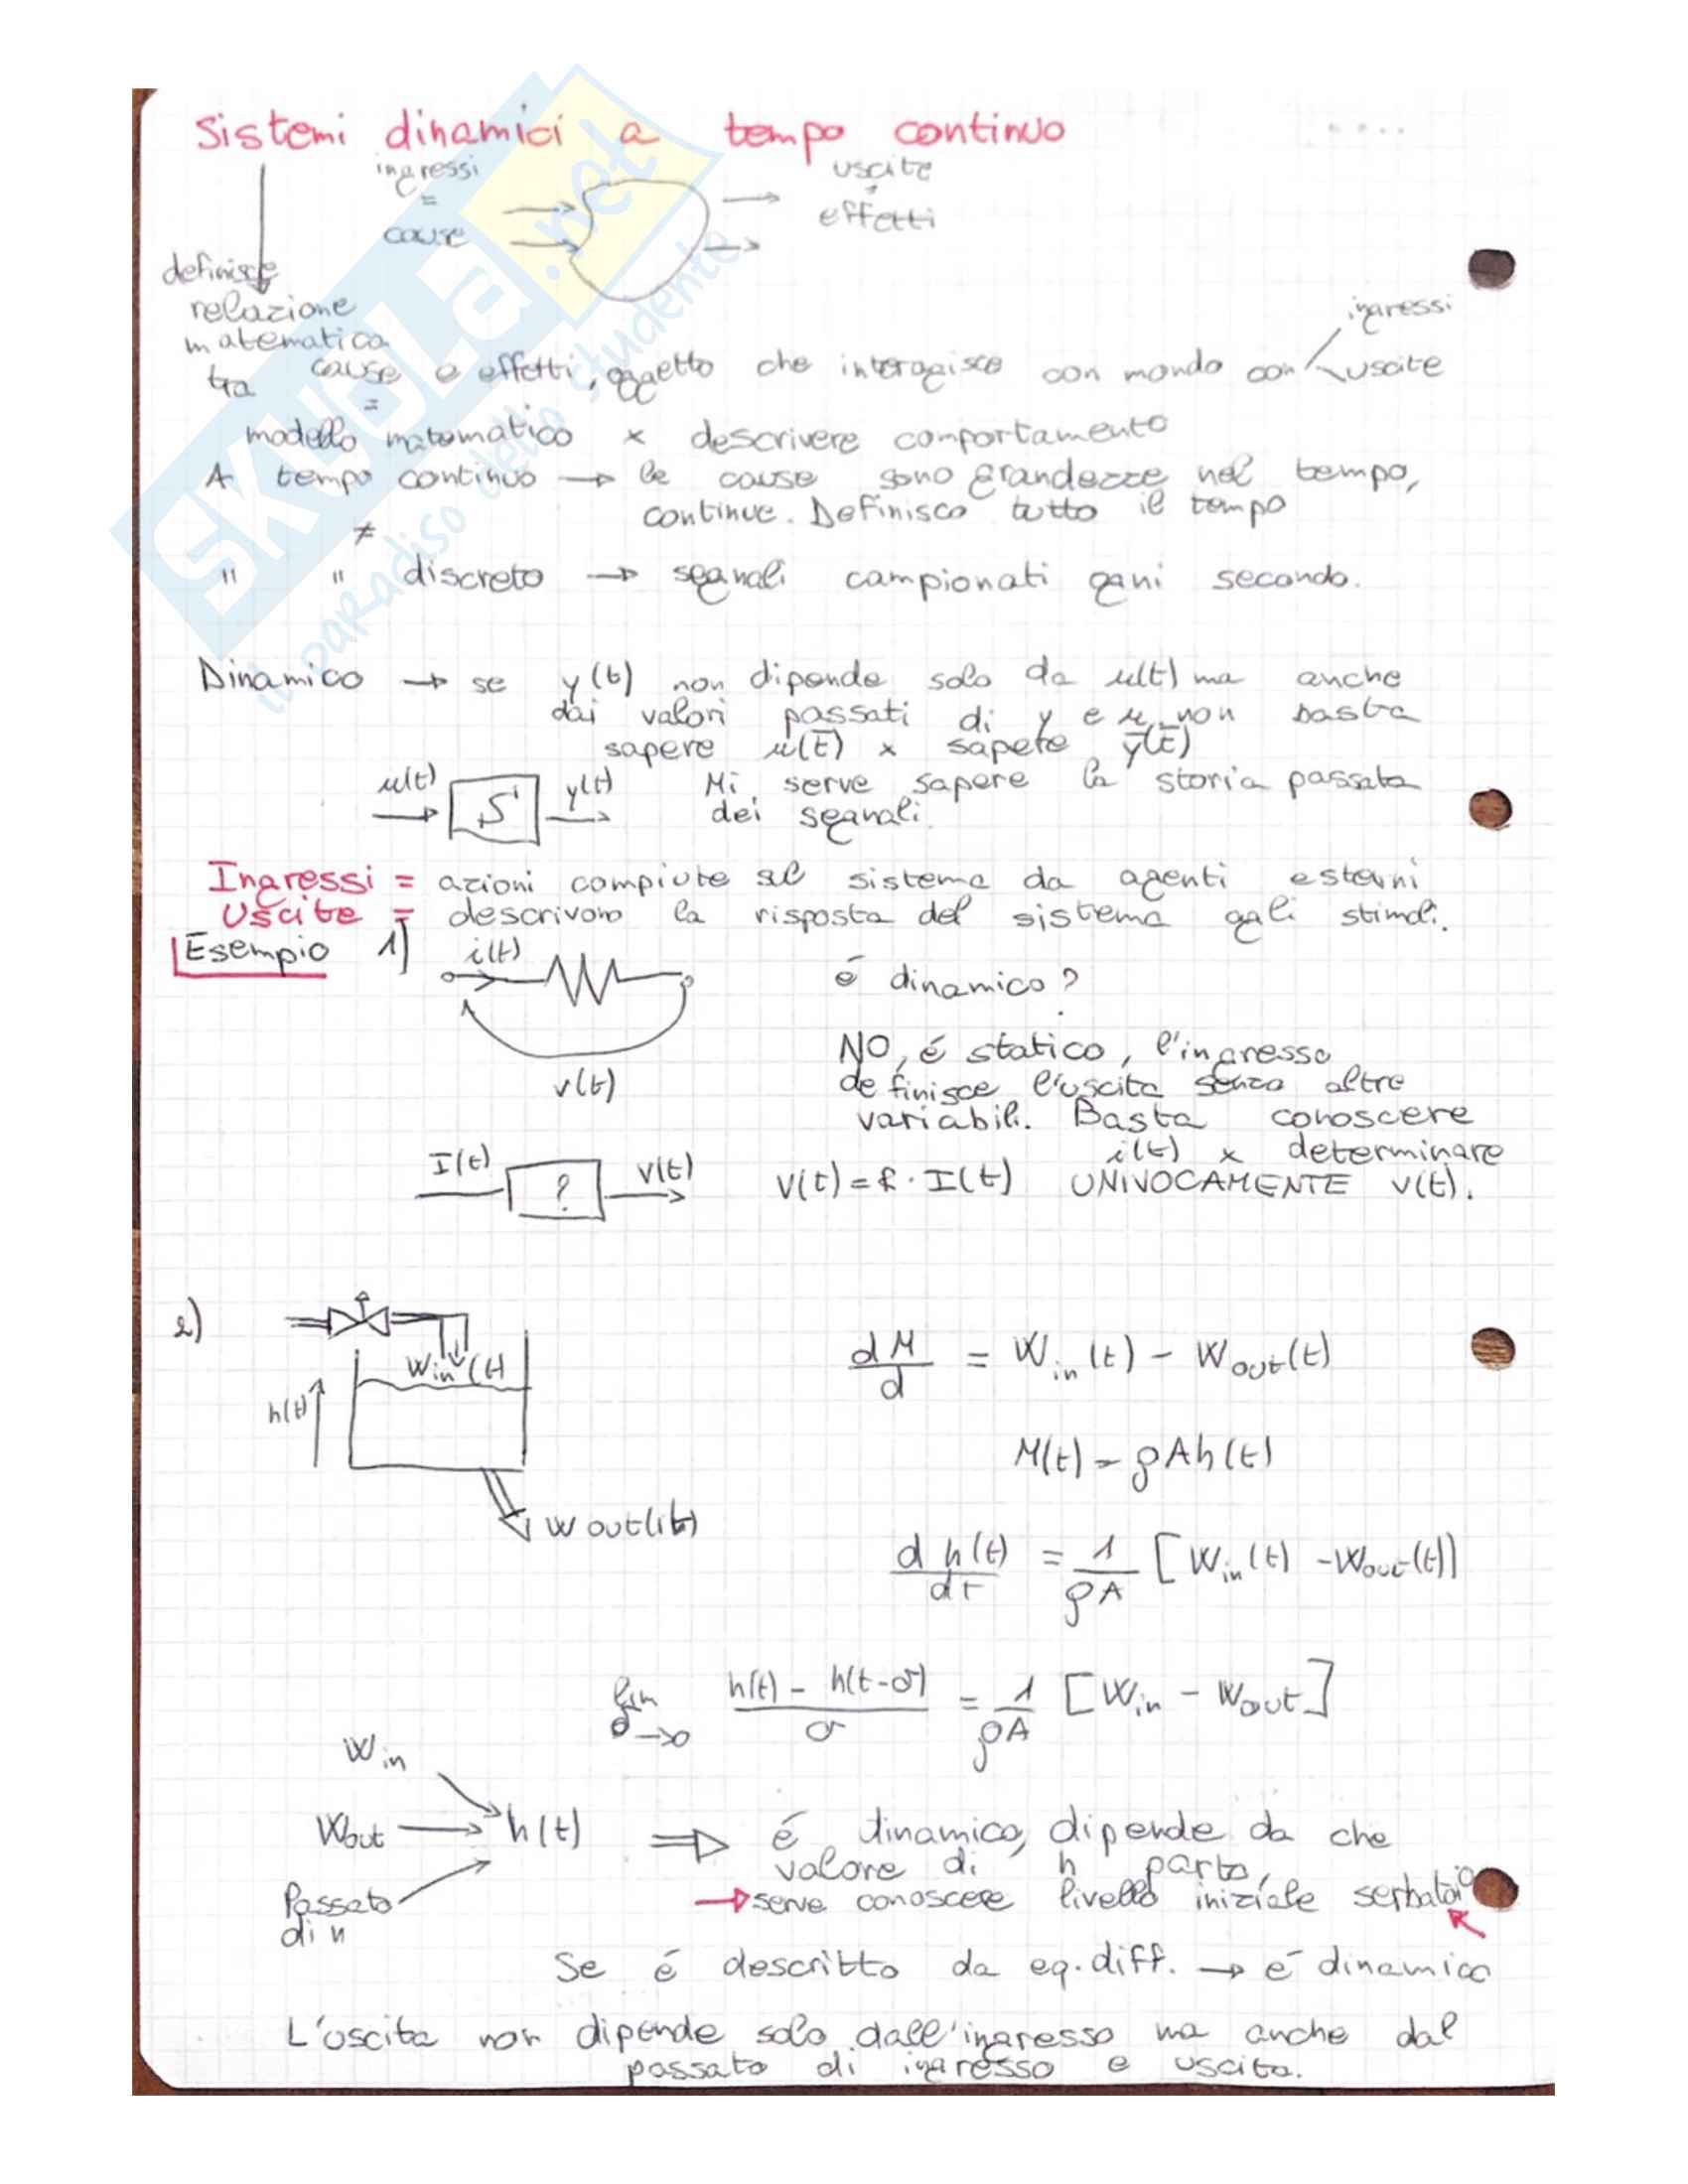 Sistemi dinamici a tempo continuo
ingressi
=
cause
uscite
=
effetti
definisce
relazione
matematica
tra cause e effetti, oggetto che interagisce con mondo con ingressi
uscite
=
modello matematico x descrivere comportamento
A tempo continuo → le cause sono grandezze nel tempo,
continue. Definisco tutto il tempo
≠
" " discreto → segnali campionati ogni secondo.
Dinamico → se y(t) non dipende solo da u(t) ma anche
dai valori passati di y e u, non basta
sapere u(t̄) x sapere y(t̄)
u(t) S y(t)
Mi serve sapere la storia passata
dei segnali.
Ingressi = azioni compiute sul sistema da agenti esterni
Uscite = descrivono la risposta del sistema agli stimoli.
Esempio 1)
i(t)
v(t)
é dinamico?
NO, é statico, l'ingresso
definisce l'uscita senza altre
variabili. Basta conoscere
i(t) x determinare
I(t) ? V(t)
V(t) = R · I(t) UNIVOCAMENTE v(t).
2)
Win(t)
h(t)
Wout(t)
dM/d = Win(t) - Wout(t)
M(t) = ρAh(t)
d h(t)/dt = 1/ρA [Win(t) - Wout(t)]
lim σ→0 h(t) - h(t-σ)/σ = 1/ρA [Win - Wout]
Win
Wout → h(t)
Passato
di h
⇒ é dinamico, dipende da che
valore di h parto,
→ serve conoscere livello iniziale serbatoio
Se é descritto da eq.diff. → é dinamico
L'uscita non dipende solo dall'ingresso ma anche dal
passato di ingresso e uscita.
SKUOLA.net
il paradiso dello studente